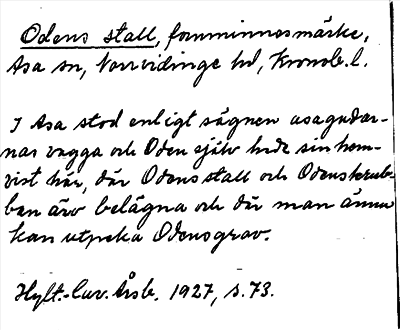 Odens stall, fornminnesmärke,
Asa sn, Norrvidinge hd, Kronob. l.
I Asa stod enligt sägnen asagudar-
nas vagga och Oden själv hade sin hem-
vist här, där Odens stall och Odenskrub-
ban äro belägna och där man ännu
kan utpeka Odensgrav.
Hylt.-Cav. Årsb. 1927, s. 73.